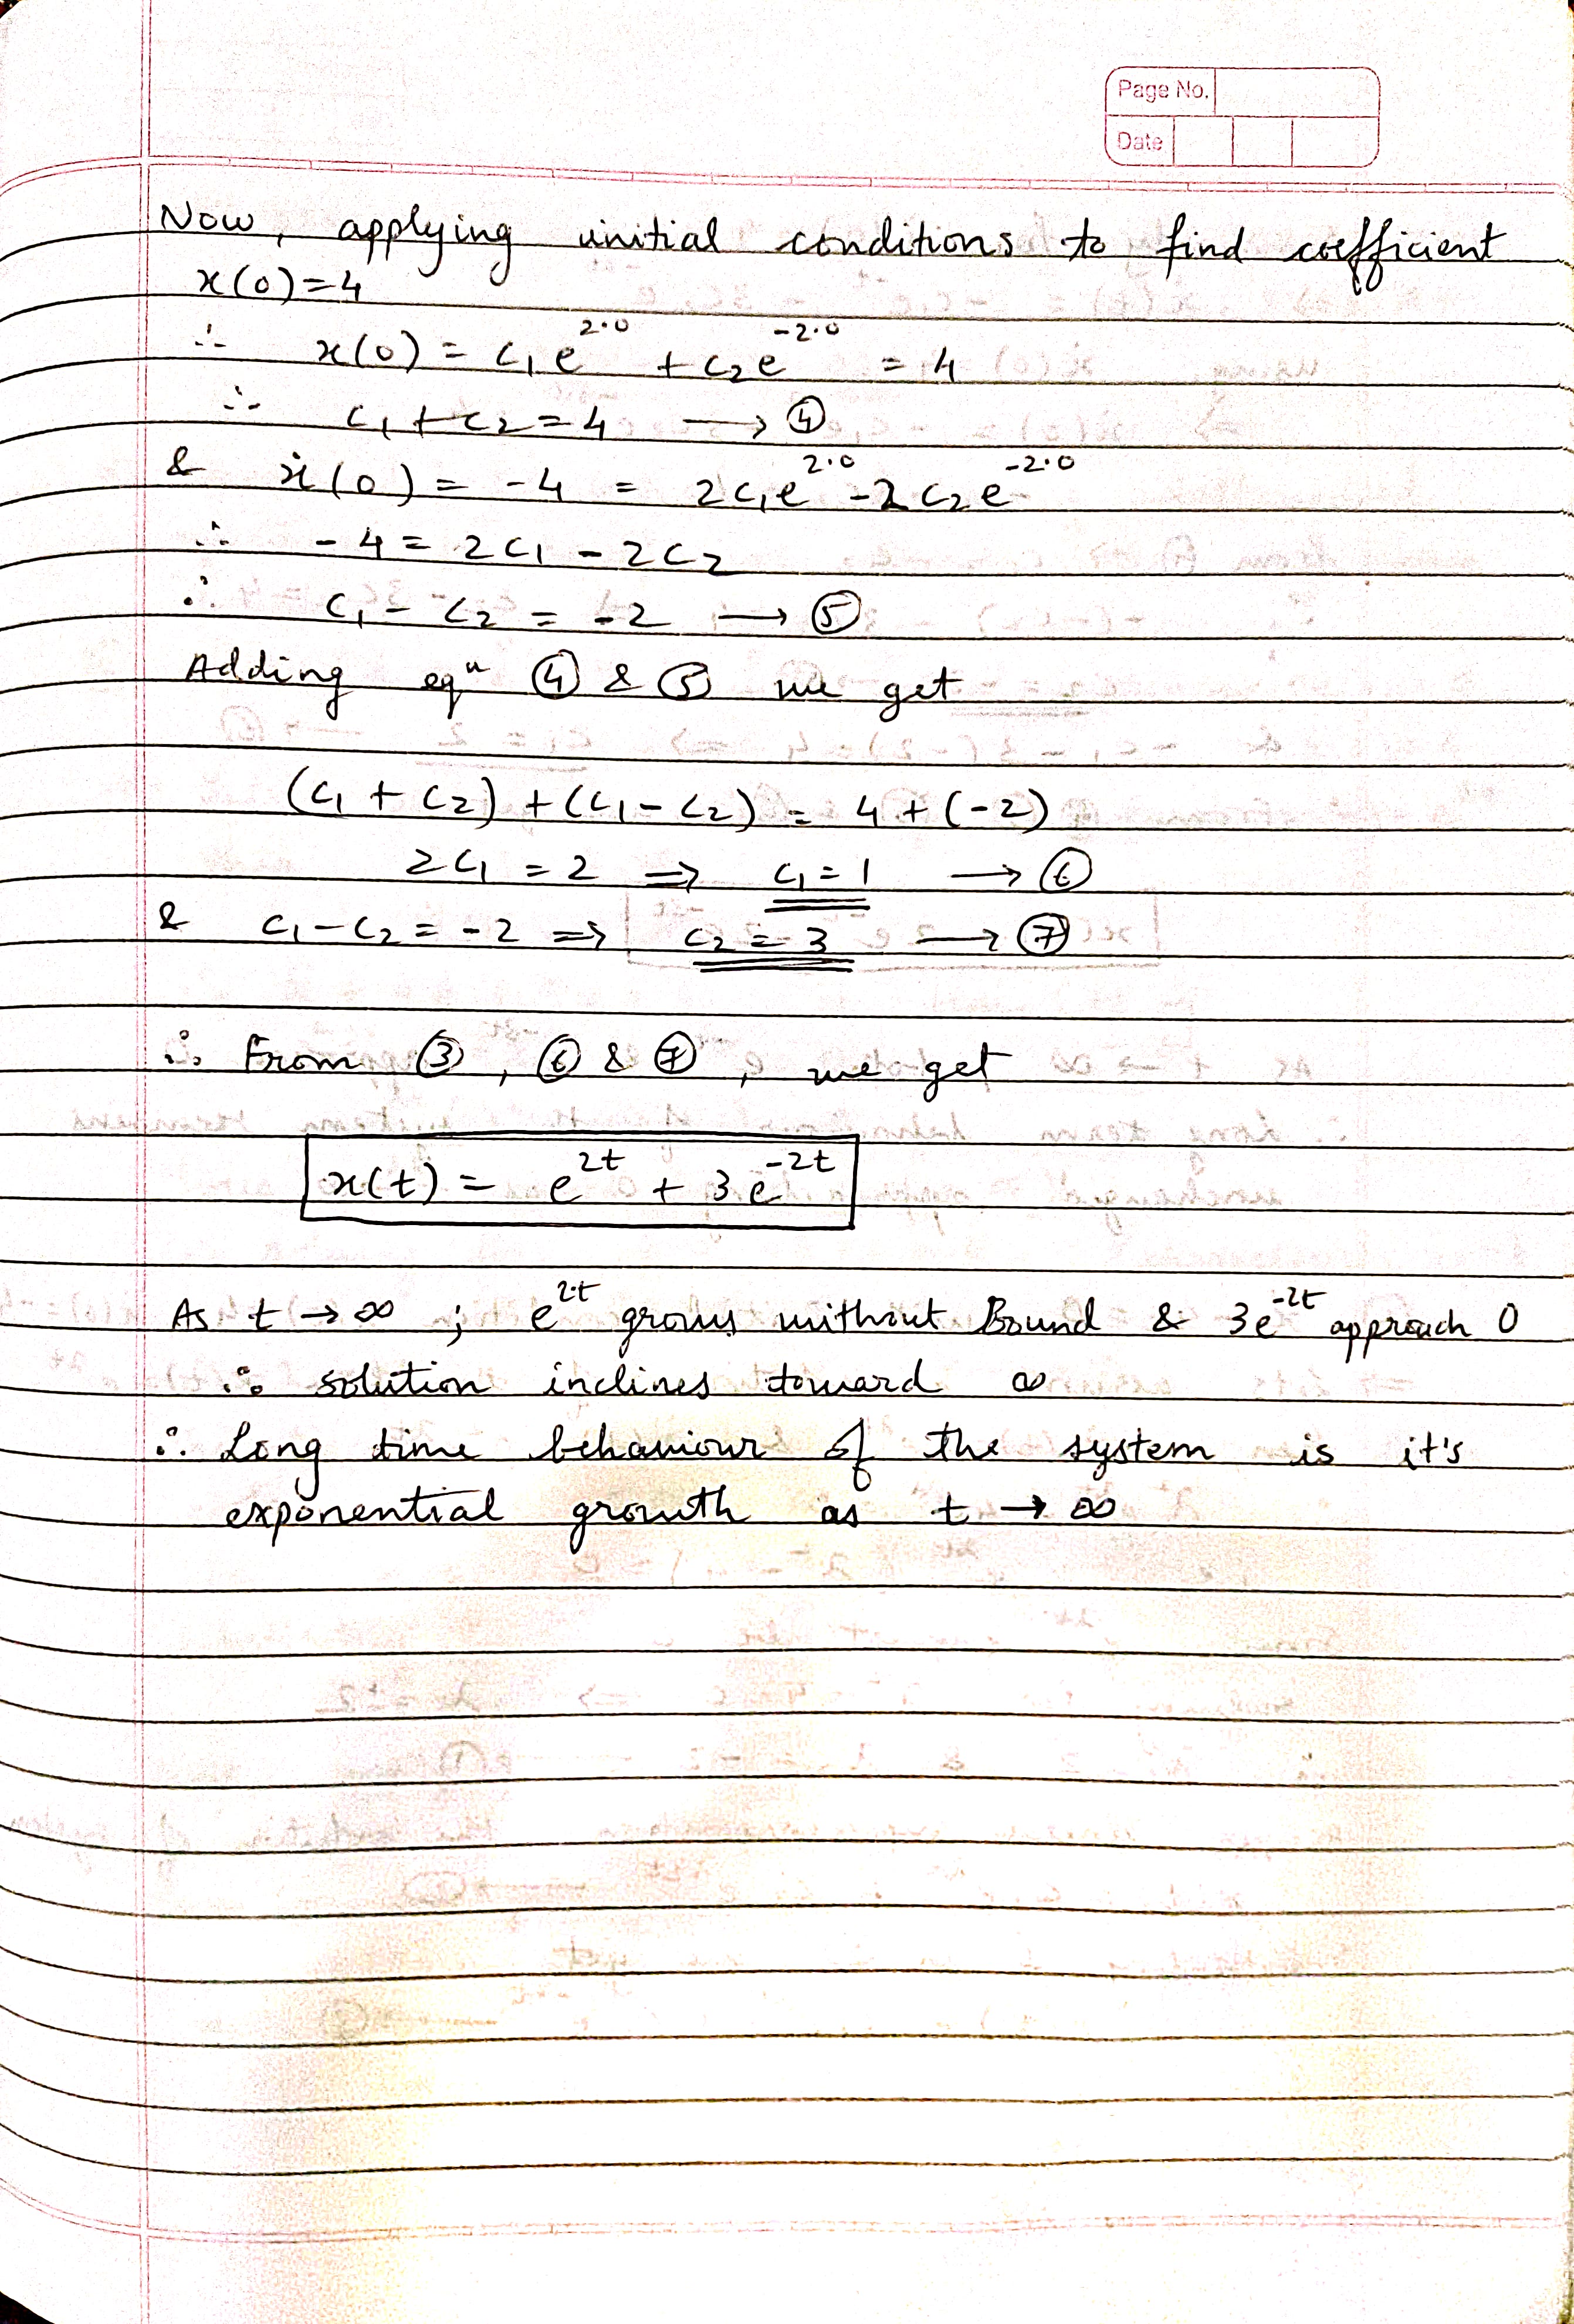 Page No.
Date
Now, applying initial conditions to find coefficient
x(0)=4
∴ x(0) = c₁e^{2·0} + c₂e^{-2·0} = 4
∴ c₁ + c₂ = 4 → ④
& ẋ(0) = -4 = 2c₁e^{2·0} - 2c₂e^{-2·0}
∴ -4 = 2c₁ - 2c₂
∴ c₁ - c₂ = -2 → ⑤
Adding eqⁿ ④ & ⑤ we get
(c₁ + c₂) + (c₁ - c₂) = 4 + (-2)
2c₁ = 2 ⇒ c₁ = 1 → ⑥
& c₁ - c₂ = -2 ⇒ c₂ = 3 → ⑦
∴ From ③, ⑥ & ⑦, we get
x(t) = e^{2t} + 3e^{-2t}
As t → ∞ ; e^{2t} grows without Bound & 3e^{-2t} approach 0
∴ solution inclines toward ∞
∴ Long time behaviour of the system is it's
exponential growth as t → ∞